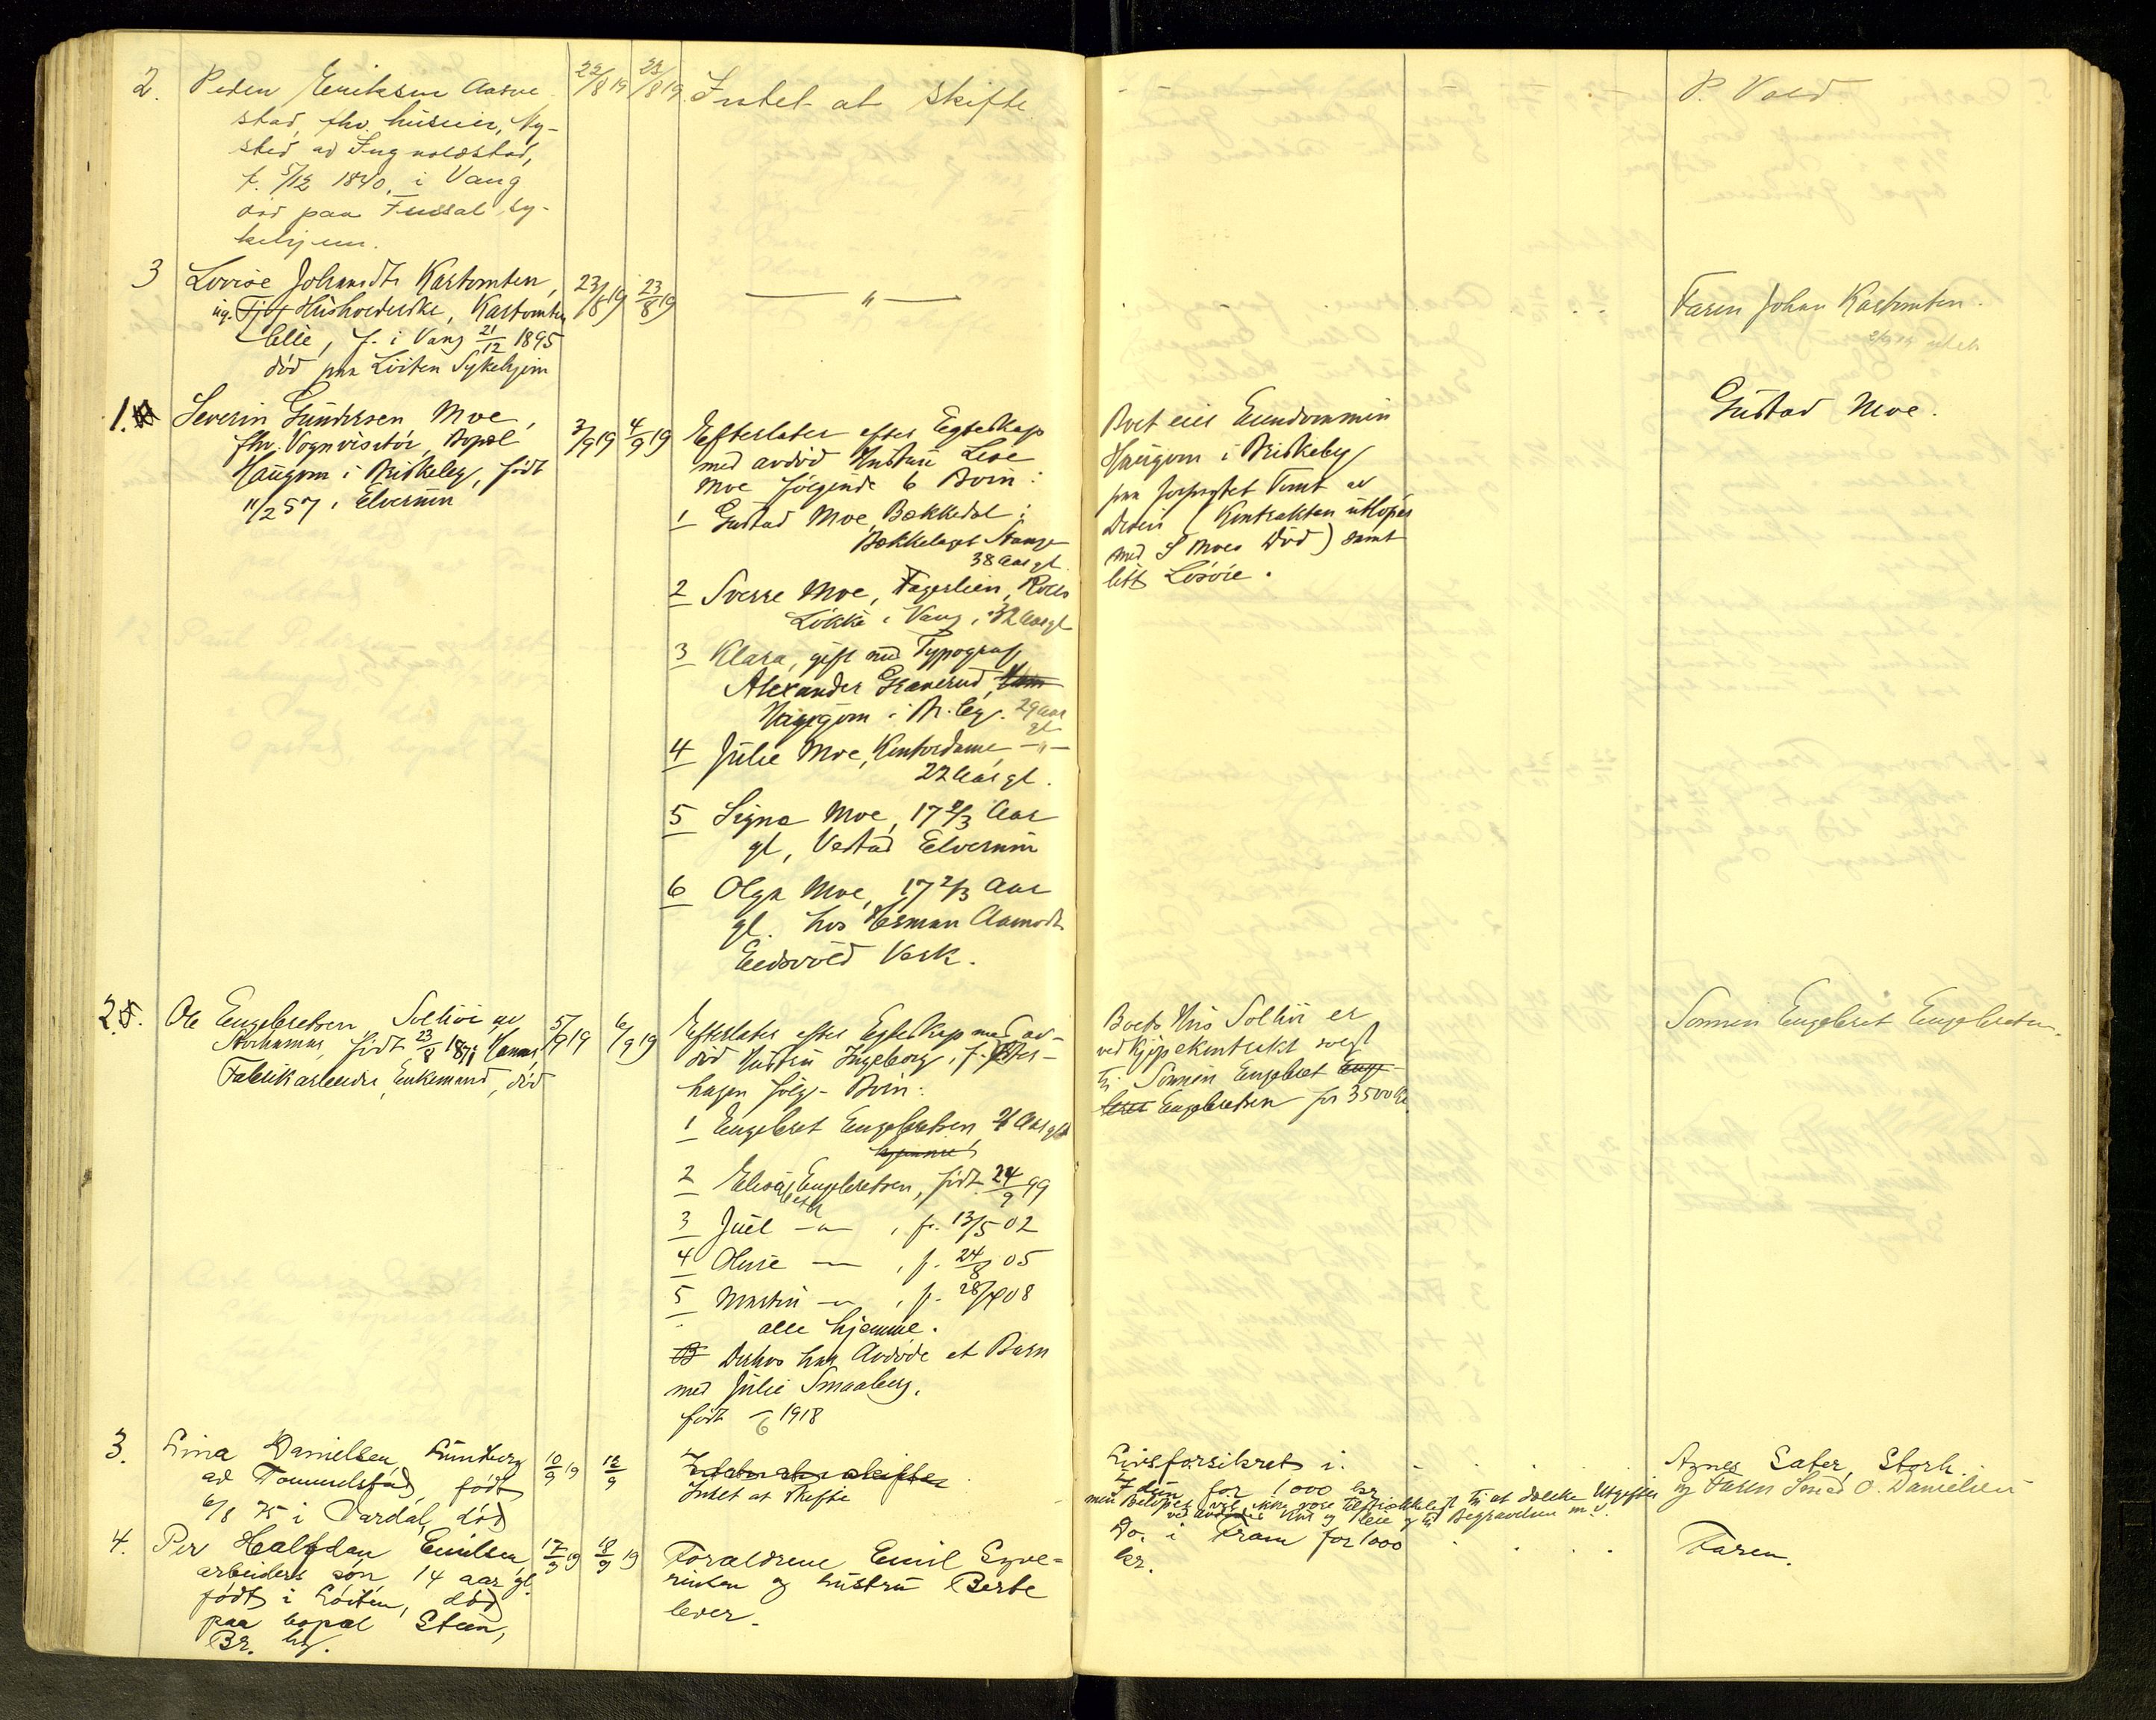 2. Peder Eriksen
22/8 19 23/8 19 Intet at skifte
P. Vold
stad, fhv. husmn, Ny-
sted
f. 5/12 1840, i Vang
død paa Furdal Sy-
kehjem.
3 Lovise Johansdtr Kastomten,
ug. Husholderske, Kastomten
f. i Vang 21/12 1895
død paa Löiten Sykehjem
23/8 19 23/8 19 — " —
Faren Johan Kastomten.
1. Severin Gundersen Moe,
fhv. Vognvisitør, Bopæl
Haugom i Briskeby, født
11/2 57 i Elverum
3/9 19 4/9 19
Efterlater efter Egteskap
med avdød Hustru Lise
Moe følgende 6 Børn:
1 Gustad Moe, Bækkedal i
Bækkelaget Stange
38 Aar gl.
2 Sverre Moe, Fagerlien, Roers
Løkke i Vang, 32 Aar gl
3 Klara, gift med Typograf
Alexander Granerud,
Haugom i Br.by. 29 Aar
gl
4 Julie Moe, Kontordame — " —
22 Aar gl.
5 Signe Moe, 17 2/3 Aar
gl, Vestad Elverum
6 Olga Moe, 17 2/3 Aar
gl. hos Herman Aamodt
Eidsvold Værk.
Boet eier Eiendommen
Haugom i Briskeby
paa forpagtet Tomt av
(Kontrakten utløper
med S Moes Død) samt
litt Løsøre.
Gustad Moe.
2. Ole Engebretsen Solliv av
Storhamar, født 23/8 187 i Vang,
Fabrikarbeider, Enkemand, død
5/9 19 6/9 19
Efterlater efter Egteskap med av-
død Hustru Ingeborg, f.
hagen følg. Børn:
1 Engebret Engebretsen, 21 Aar gl
hjemme
2 Elisabeth Engebretsen, født 24/9 99
3 Juel — " — , f. 13/5 02
4 — " — , f. 24/8 05
5 Martin — " — , f. 28/4 08
alle hjemme.
Desuten har Avdøde et Barn
med Julie Smaaberg,
født /6 1918
Boets Hus Solliv er
ved Kjøpekontrakt solgt
til Sønnen Engebret Enge-
bret Engebretsen for 3500 Kr.
Sønnen Engebret Engebretsen.
3. Lina Danielsen, Lundberg
ad Tommelstad, født
6/8 75 i Vardal, død
10/9 19 12/9
Intet at skifte
Intet at skifte
Livsforsikret i
Idun for 1000 kr
men Beløpet vil ikke være tilstrækkeligt til at dække Utgifter
ved Avdødes Kur og Pleie og til Begravelsen m.v.
Agnes Sater, Storh.
og Faren Smed O. Danielsen
4. Per Halfdan Emilsen,
arbeiders søn 14 aar gl.
født i Löiten, død
paa bopæl Steen,
Br. by.
17/9 19 18/9 19
Forældrene Emil Syve-
rinsen og hustru Berte
lever.
Do. i Fram for 1000
kr.
Faren.